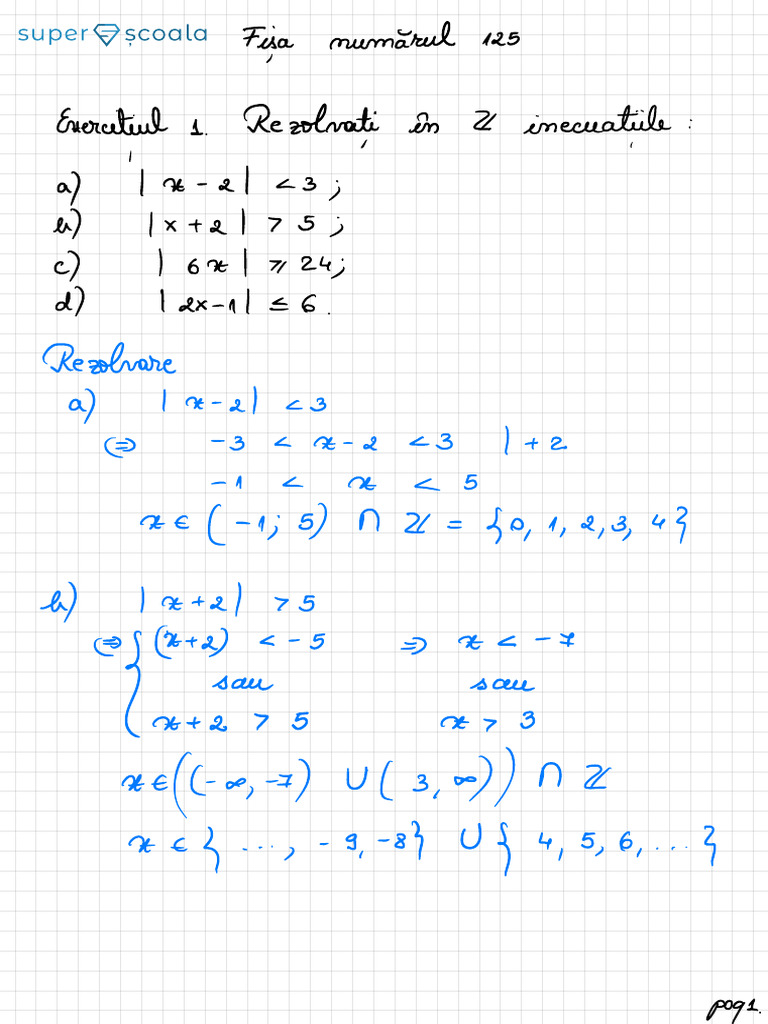 super școala Fișa numărul 125
Exercițiul 1. Rezolvați în ℤ inecuațiile :
a) | x - 2 | < 3 ;
b) | x + 2 | > 5 ;
c) | 6x | ≥ 24;
d) | 2x-1 | ≤ 6.
Rezolvare
a) | x-2 | < 3
⇔ -3 < x-2 < 3 | + 2
-1 < x < 5
x ∈ ( -1; 5) ∩ ℤ = {0, 1, 2, 3, 4}
b) | x+2 | > 5
⇔ { (x+2) < -5 ⇒ x < -7
sau sau
x+2 > 5 x > 3
x ∈ ((-∞, -7) ∪ ( 3, ∞)) ∩ ℤ
x ∈ { ..., -9, -8} ∪ { 4, 5, 6, ...}
pag 1.